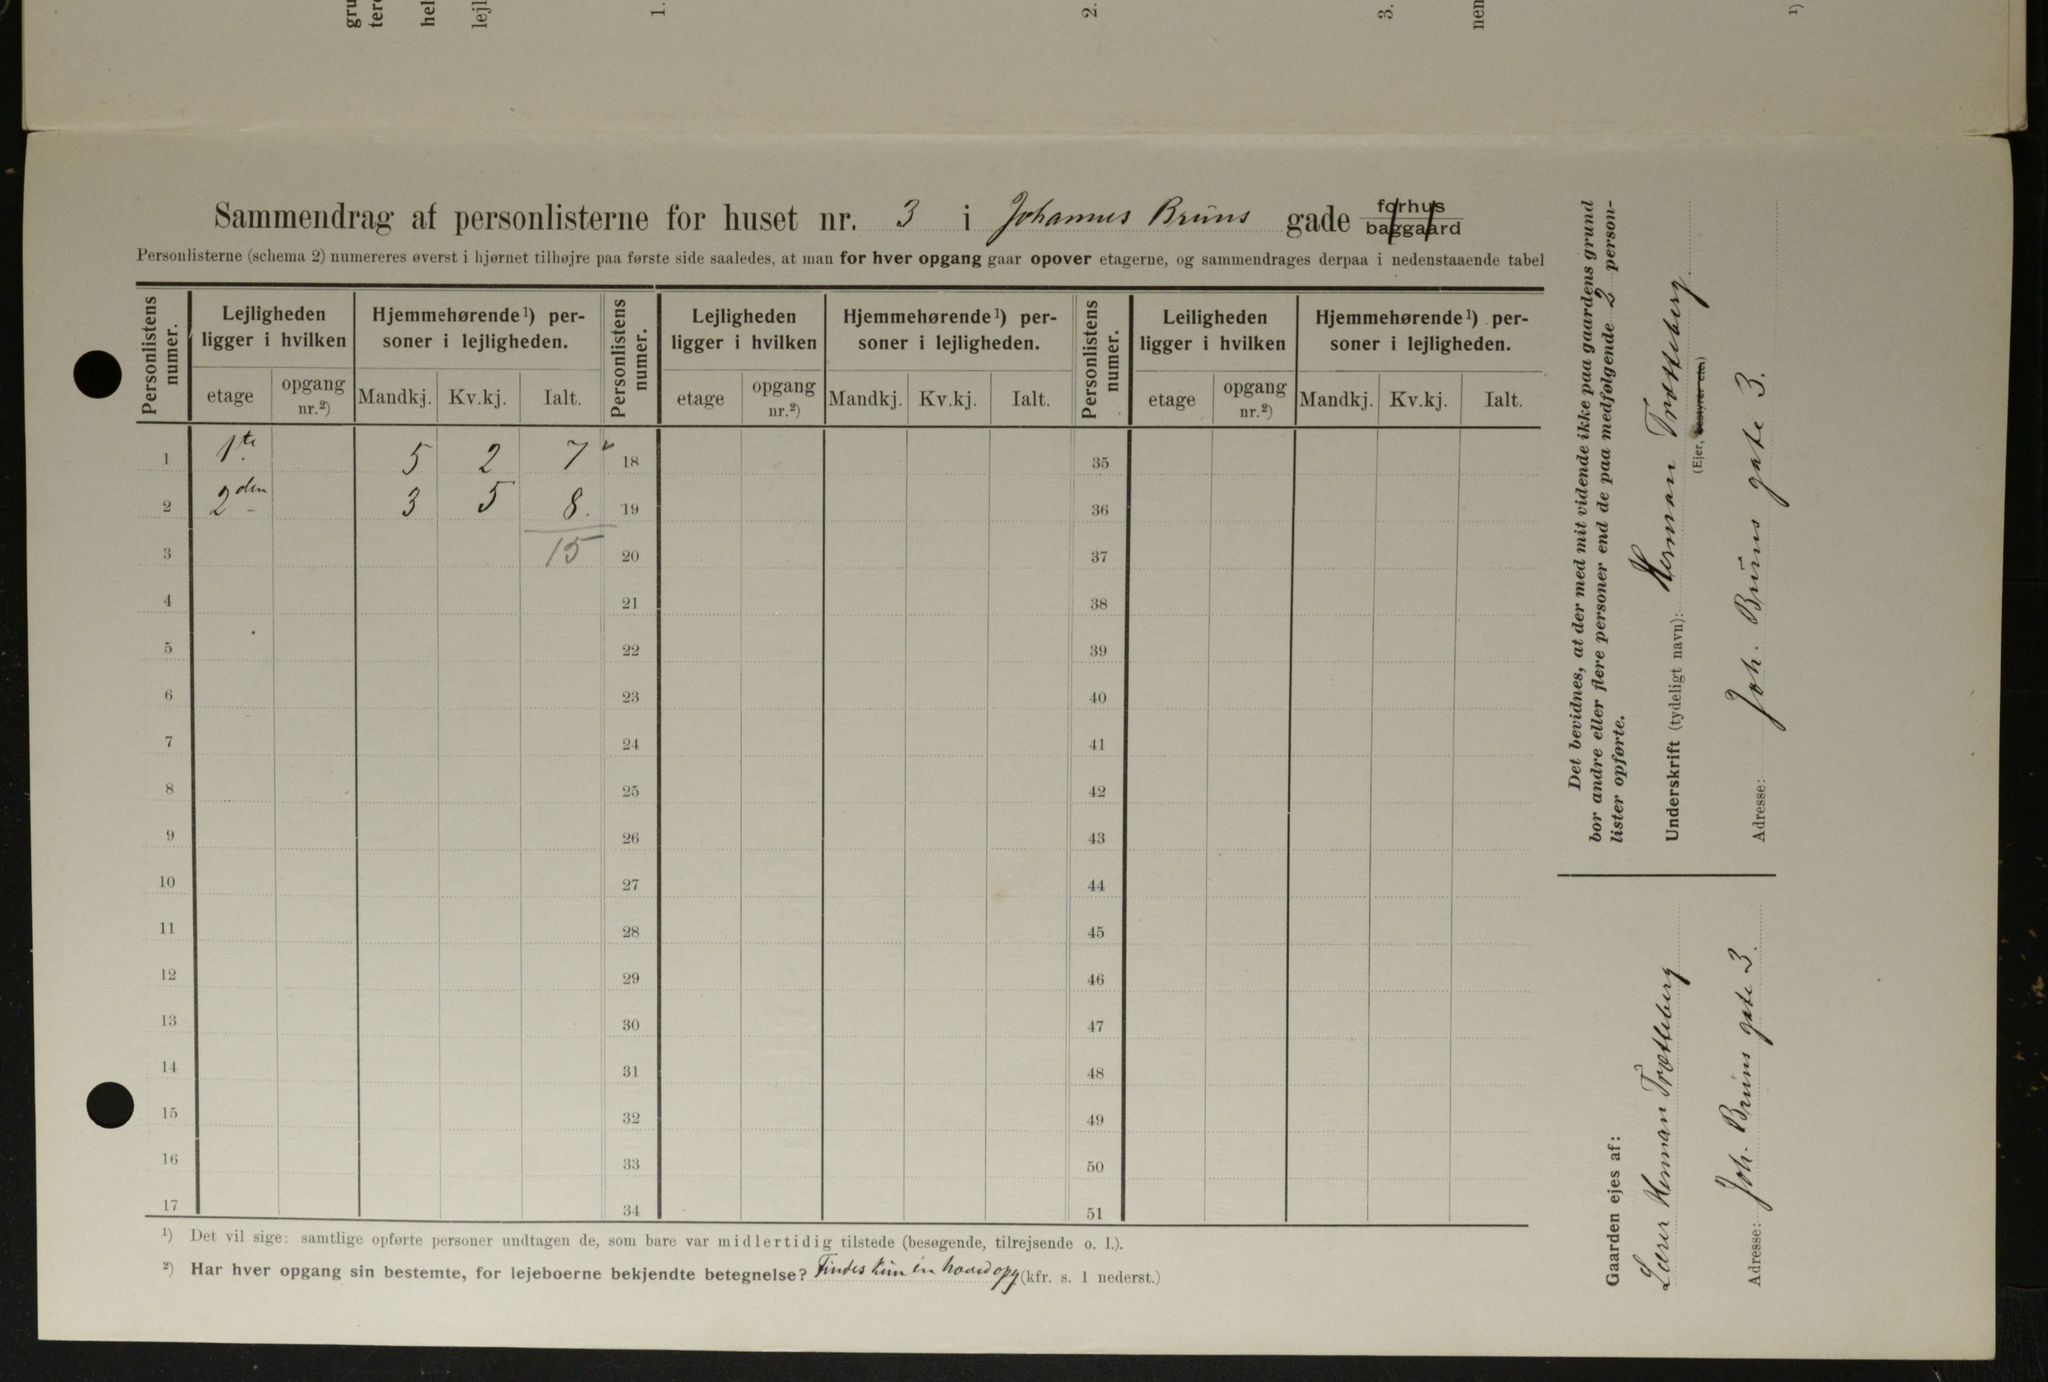 gru
tere
hel
lejl
1.
2.
3.
nen
¹)
Sammendrag af personlisterne for huset nr. 3 i Johannes Bruns gade forhus
baggaard
Personlisterne (schema 2) numereres øverst i hjørnet tilhøjre paa første side saaledes, at man for hver opgang gaar opover etagerne, og sammendrages derpaa i nedenstaaende tabel
Personlistens numer. Lejligheden ligger i hvilken Hjemmehørende¹) personer i lejligheden. Personlistens numer. Lejligheden ligger i hvilken Hjemmehørende¹) personer i lejligheden. Personlistens numer. Leiligheden ligger i hvilken Hjemmehørende¹) personer i lejligheden.
etage opgang nr.²) Mandkj. Kv.kj. Ialt. etage opgang nr.²) Mandkj. Kv.kj. Ialt. etage opgang nr.²) Mandkj. Kv.kj. Ialt.
1 1te 5 2 7 18 35
2 2den 3 5 8. 19 36
3 15 20 37
4 21 38
5 22 39
6 23 40
7 24 41
8 25 42
9 26 43
10 27 44
11 28 45
12 29 46
13 30 47
14 31 48
15 32 49
16 33 50
17 34 51
¹) Det vil sige: samtlige opførte personer undtagen de, som bare var midlertidig tilstede (besøgende, tilrejsende o. l.).
²) Har hver opgang sin bestemte, for lejeboerne bekjendte betegnelse? Findes kun én hovedopg (kfr. s. 1 nederst.)
Det bevidnes, at der med mit vidende ikke paa gaardens grund
bor andre eller flere personer end de paa medfølgende 2 person-
lister opførte.
Underskrift (tydeligt navn): Herman Trætteberg
(Ejer, bestyrer etc.)
Adresse: Joh. Bruns gate 3.
Gaarden ejes af:
Herman Trætteberg
Adresse: Joh. Bruns gate 3.